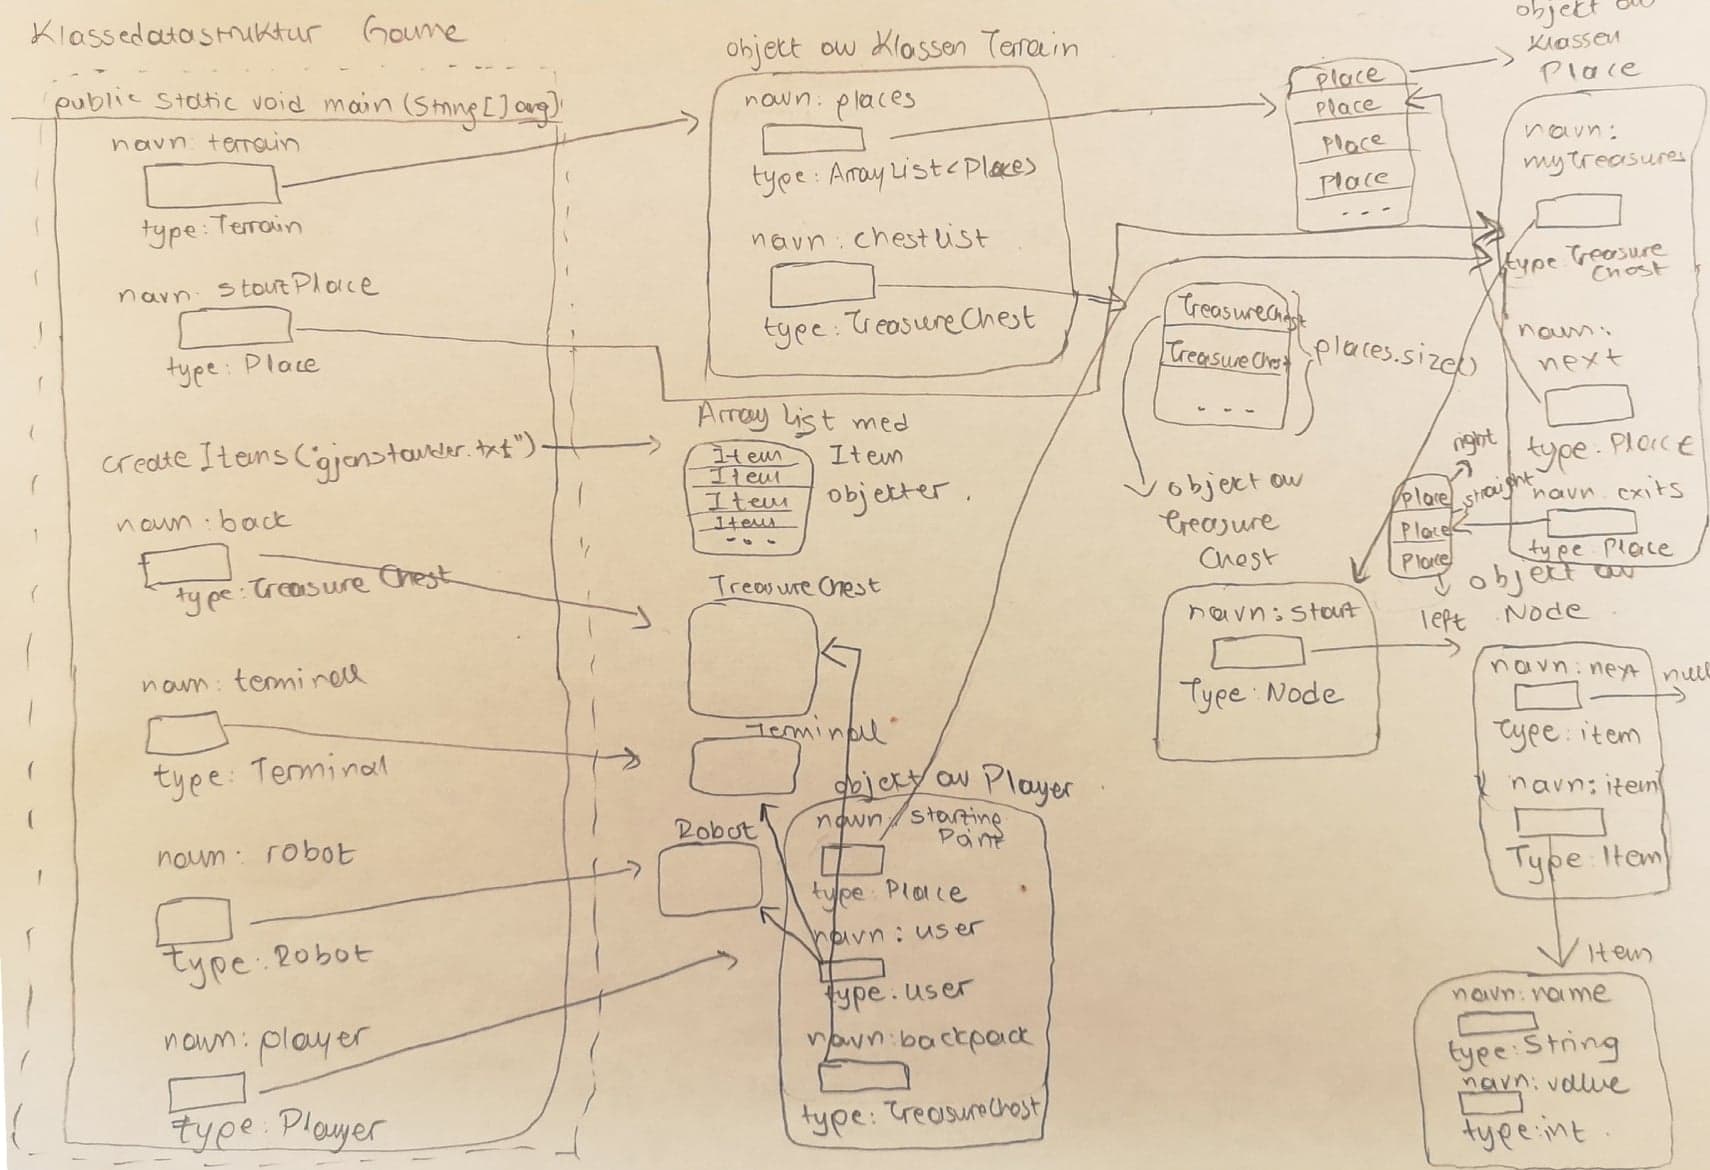 Klassedatastruktur Game
public static void main (String[] arg)
navn: terrain
type: Terrain
navn: startPlace
type: Place
create Items("gjenstander.txt")
navn: back
type: Treasure Chest
navn: terminal
type: Terminal
navn: robot
type: Robot
navn: player
type: Player
objekt av Klassen Terrain
navn: places
type: ArrayList<Places>
navn: chestlist
type: TreasureChest
Array List med
Item
objekter.
Item
Item
Item
Item
...
TreasureChest
Terminal
Robot
objekt av Player
navn: starting
Point
type: Place
navn: user
type: user
navn: backpack
type: TreasureChest
Place
Place
Place
Place
...
TreasureChest
TreasureChest
...
places.size()
objekt av
Treasure
Chest
navn: start
Type: Node
objekt av
Klassen
Place
navn:
myTreasures
type: Treasure
Chest
navn:
next
type: Place
navn exits
type: Place
right
straight
left
Place
Place
Place
objekt av
Node
navn: next
null
type: item
navn: item
Type: Item
Item
navn: name
type: String
navn: value
type: int